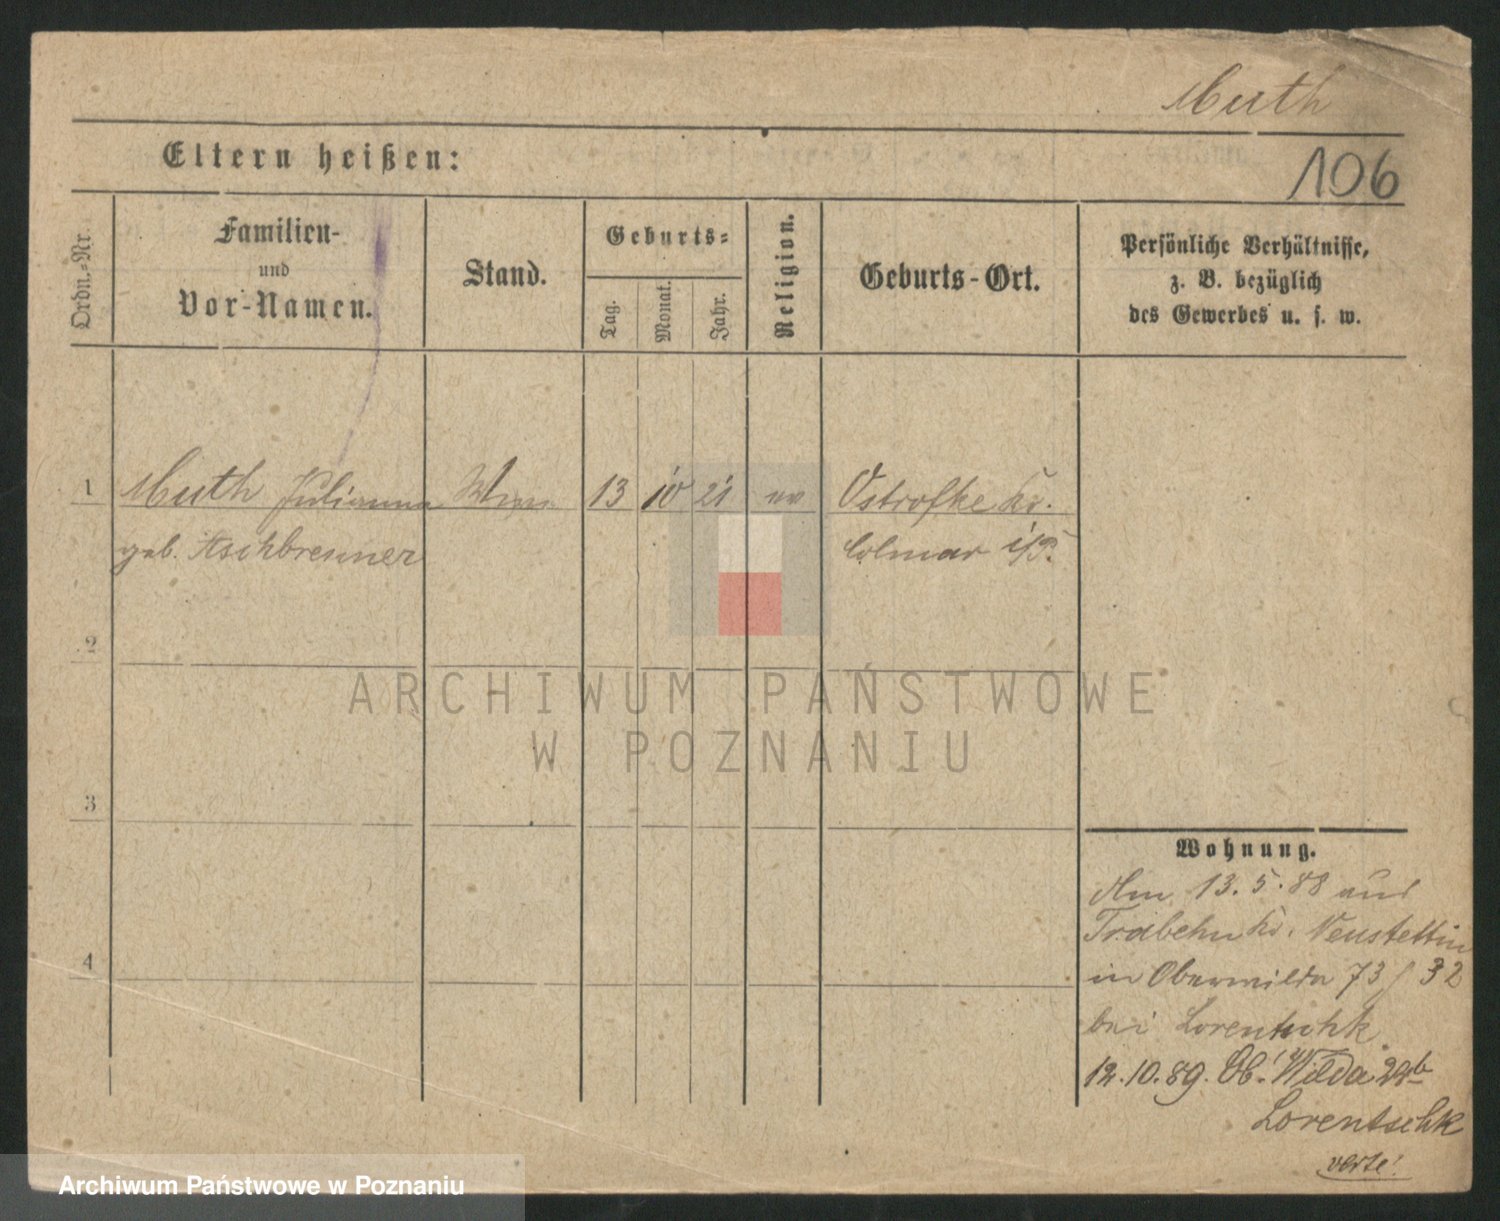 Muth
Eltern heißen:
106
Ordn.-Nr.
Familien-
und
Vor-Namen.
Stand.
Geburts-
Tag.
Monat.
Jahr.
Religion.
Geburts-Ort.
Persönliche Verhältnisse,
z. B. bezüglich
des Gewerbes u. s. w.
1 Muth Julianna 13 10 21 ev Ostrofke Kr.
geb. Aschbrenner Colmar i/P.
2
3
4
Wohnung.
Am 13.5.88 aus
Trabehn Kr. Neustettin
in Oberwilda 73/32
bei Lorentschk
12.10.89. Ob. Wilda 24b
Lorentschk
verte!
ARCHIWUM PAŃSTWOWE
W POZNANIU
Archiwum Państwowe w Poznaniu